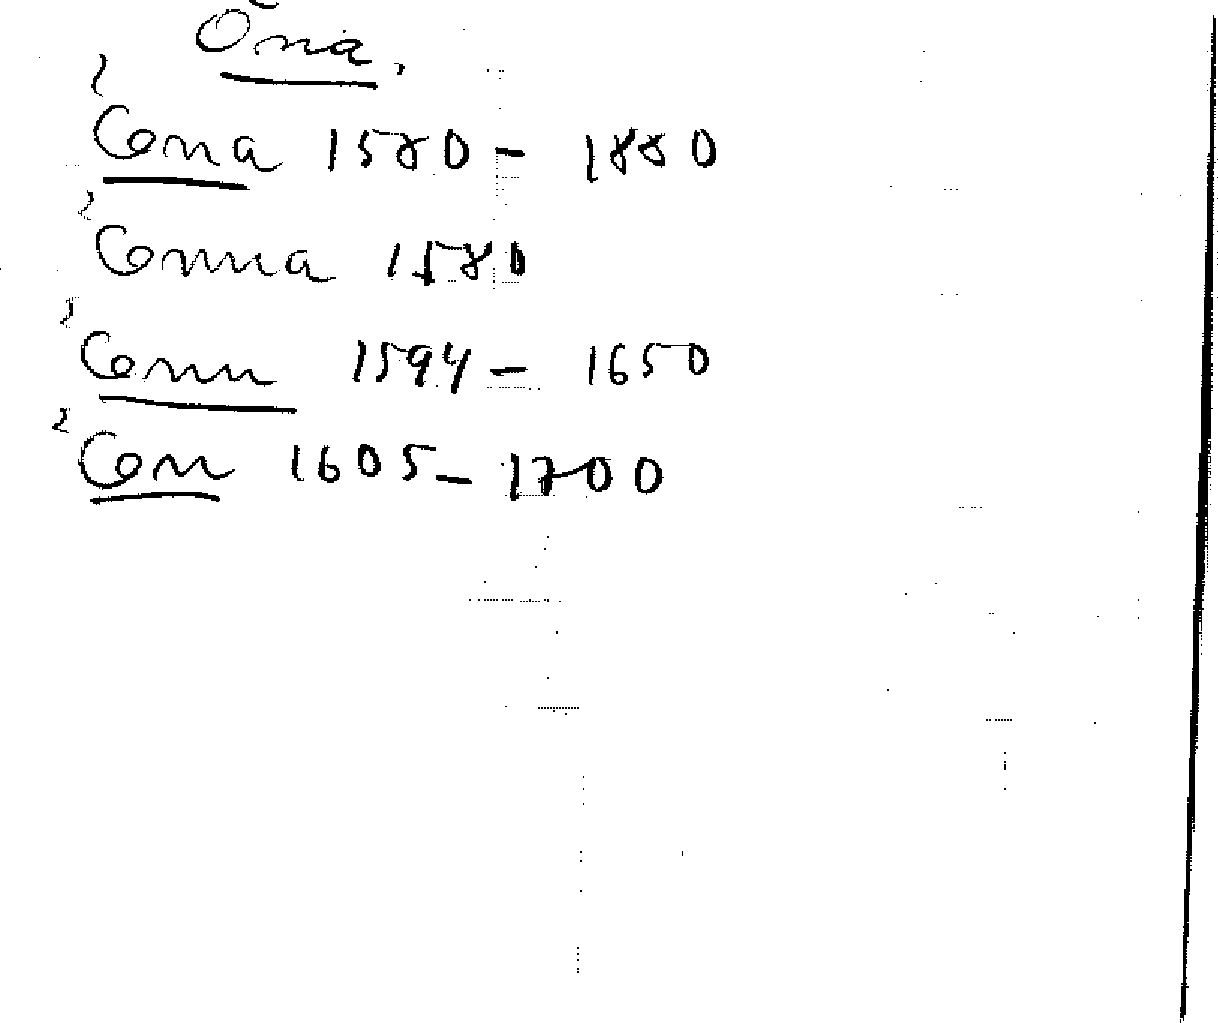 Õna,
Cona 1580 - 1880
Conna 1580
Conn 1594 - 1650
Con 1605 - 1700